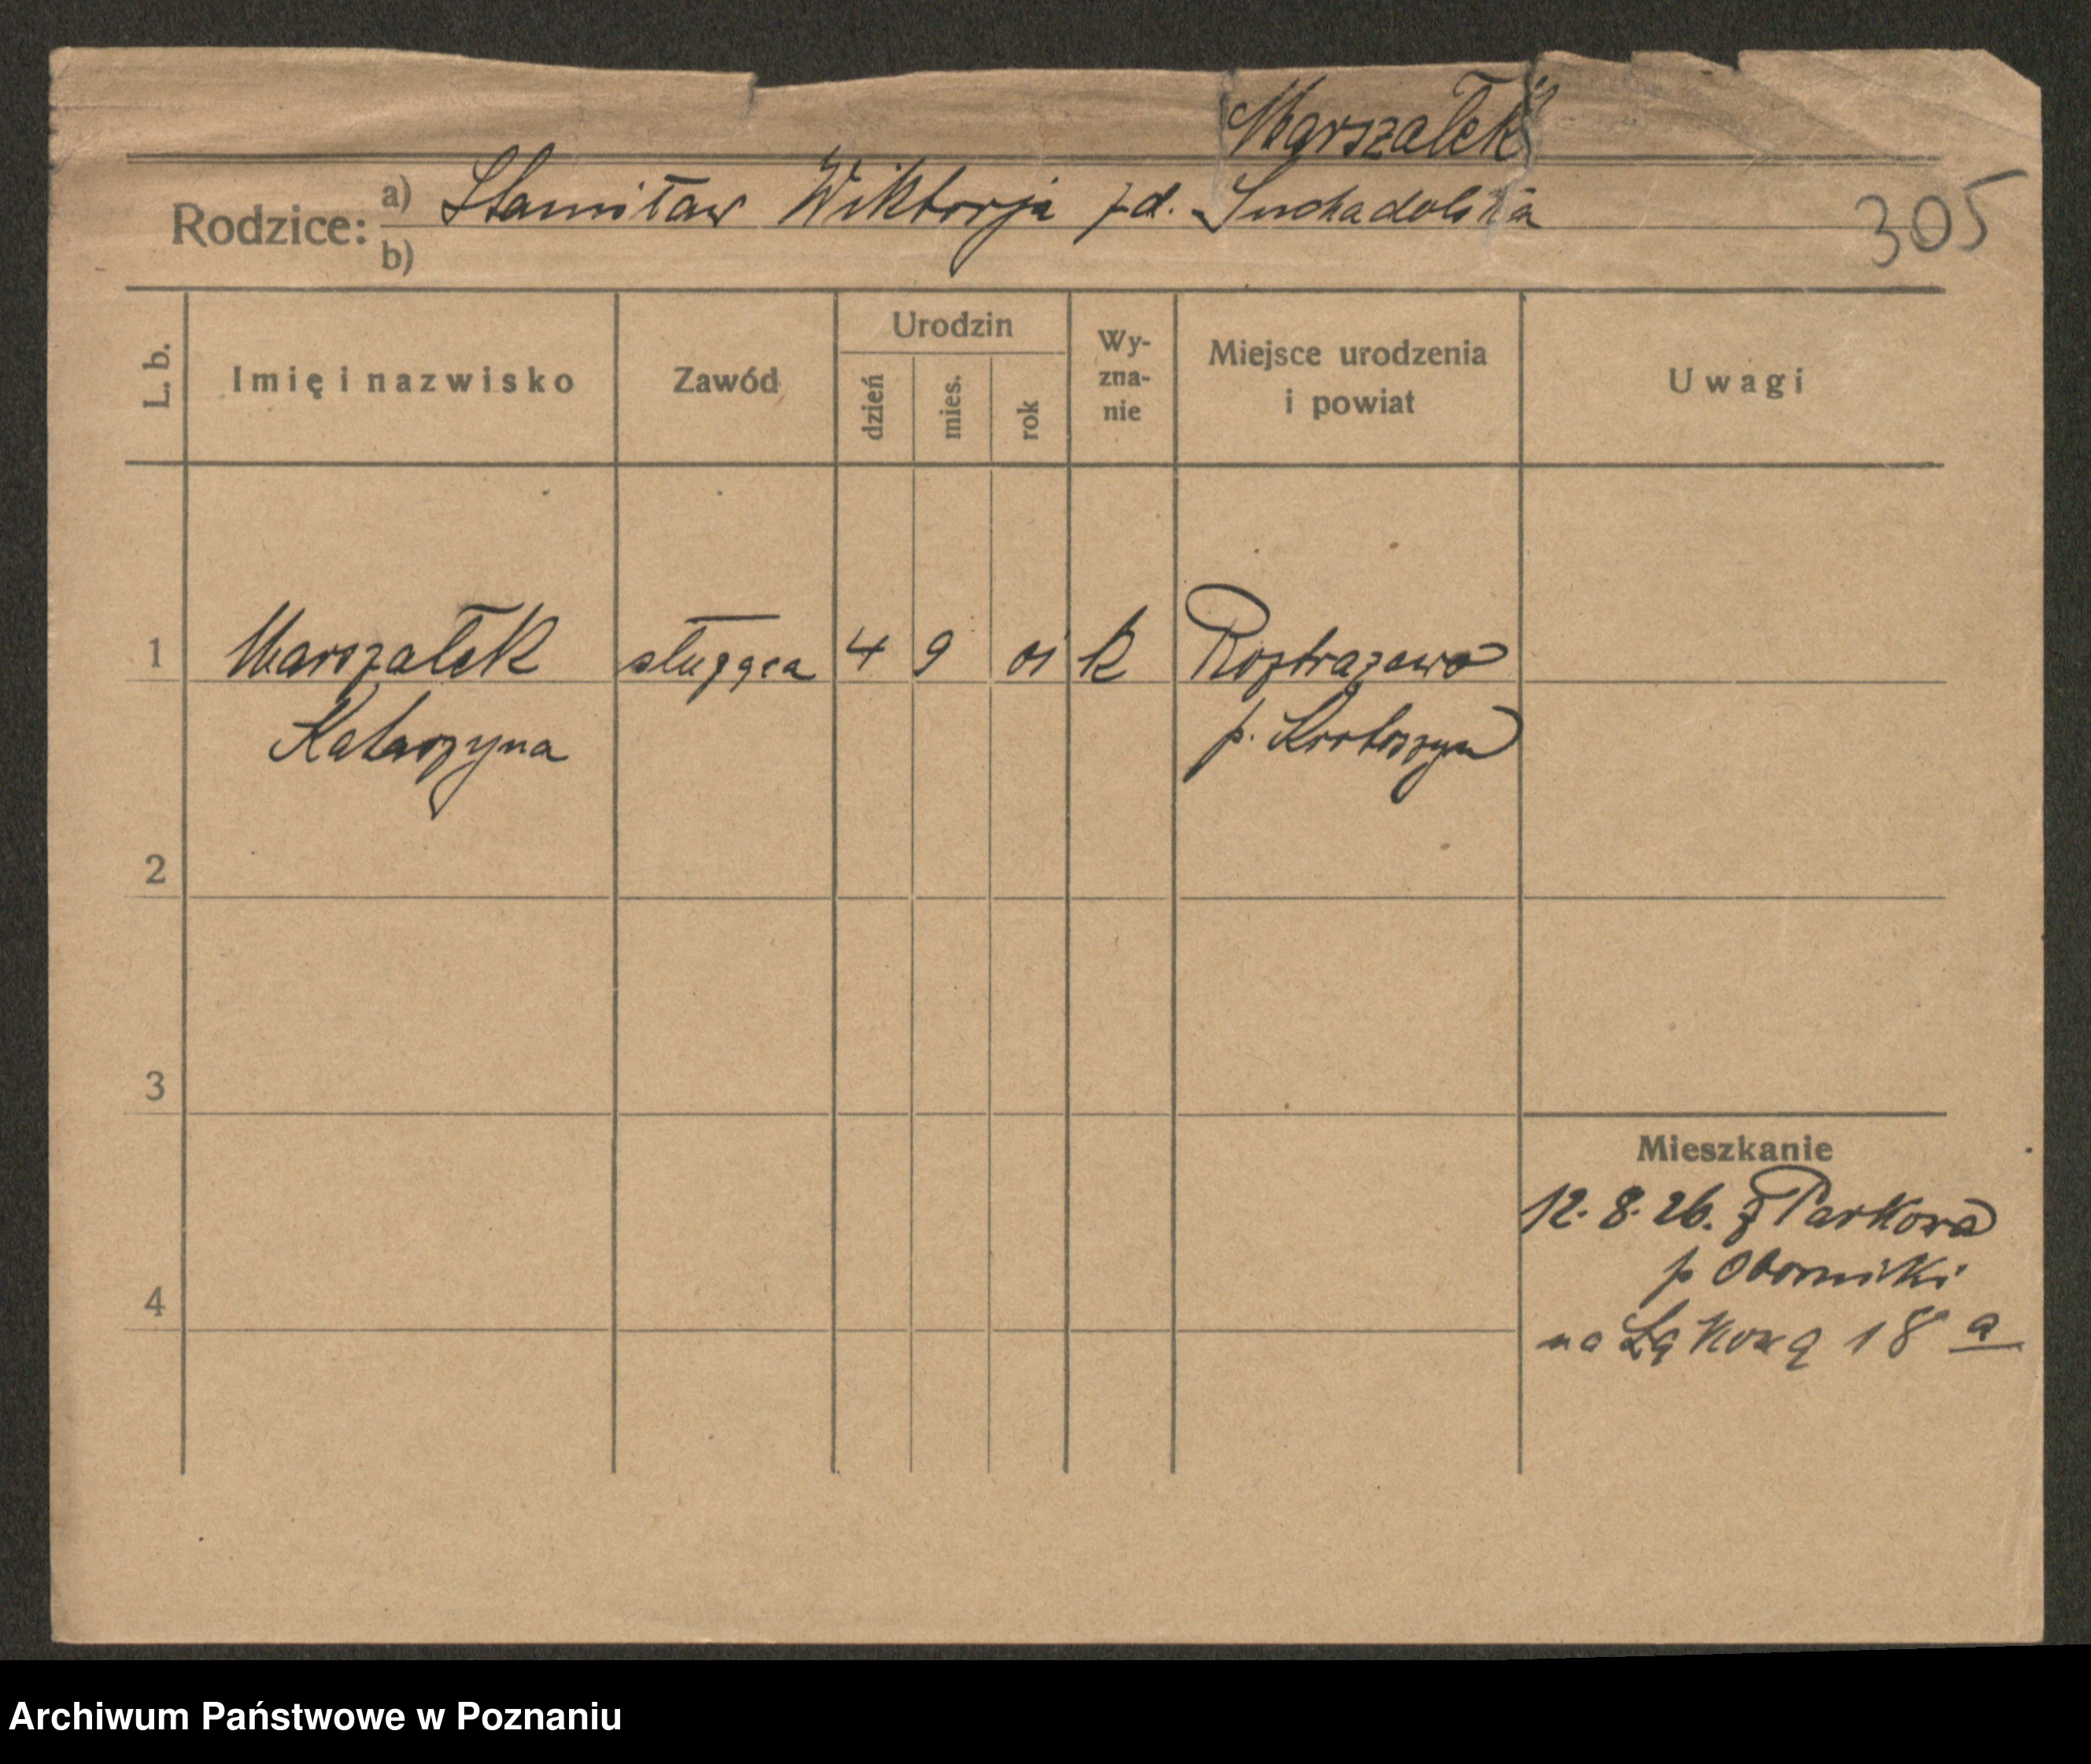 Marszałek
Rodzice: a) Stanisław Wiktorja zd. Suchadolska
b)
305
L. b. Imię i nazwisko Zawód Urodzin dzień mies. rok Wy-zna-nie Miejsce urodzenia i powiat Uwagi
1 Marszałek służąca 4 9 01 k Rozdrażewo
Katarzyna p. Krotoszyn
2
3
Mieszkanie
12.8.26. z Parkowa
p Oborniki
4
na Łąkową 18 a
Archiwum Państwowe w Poznaniu